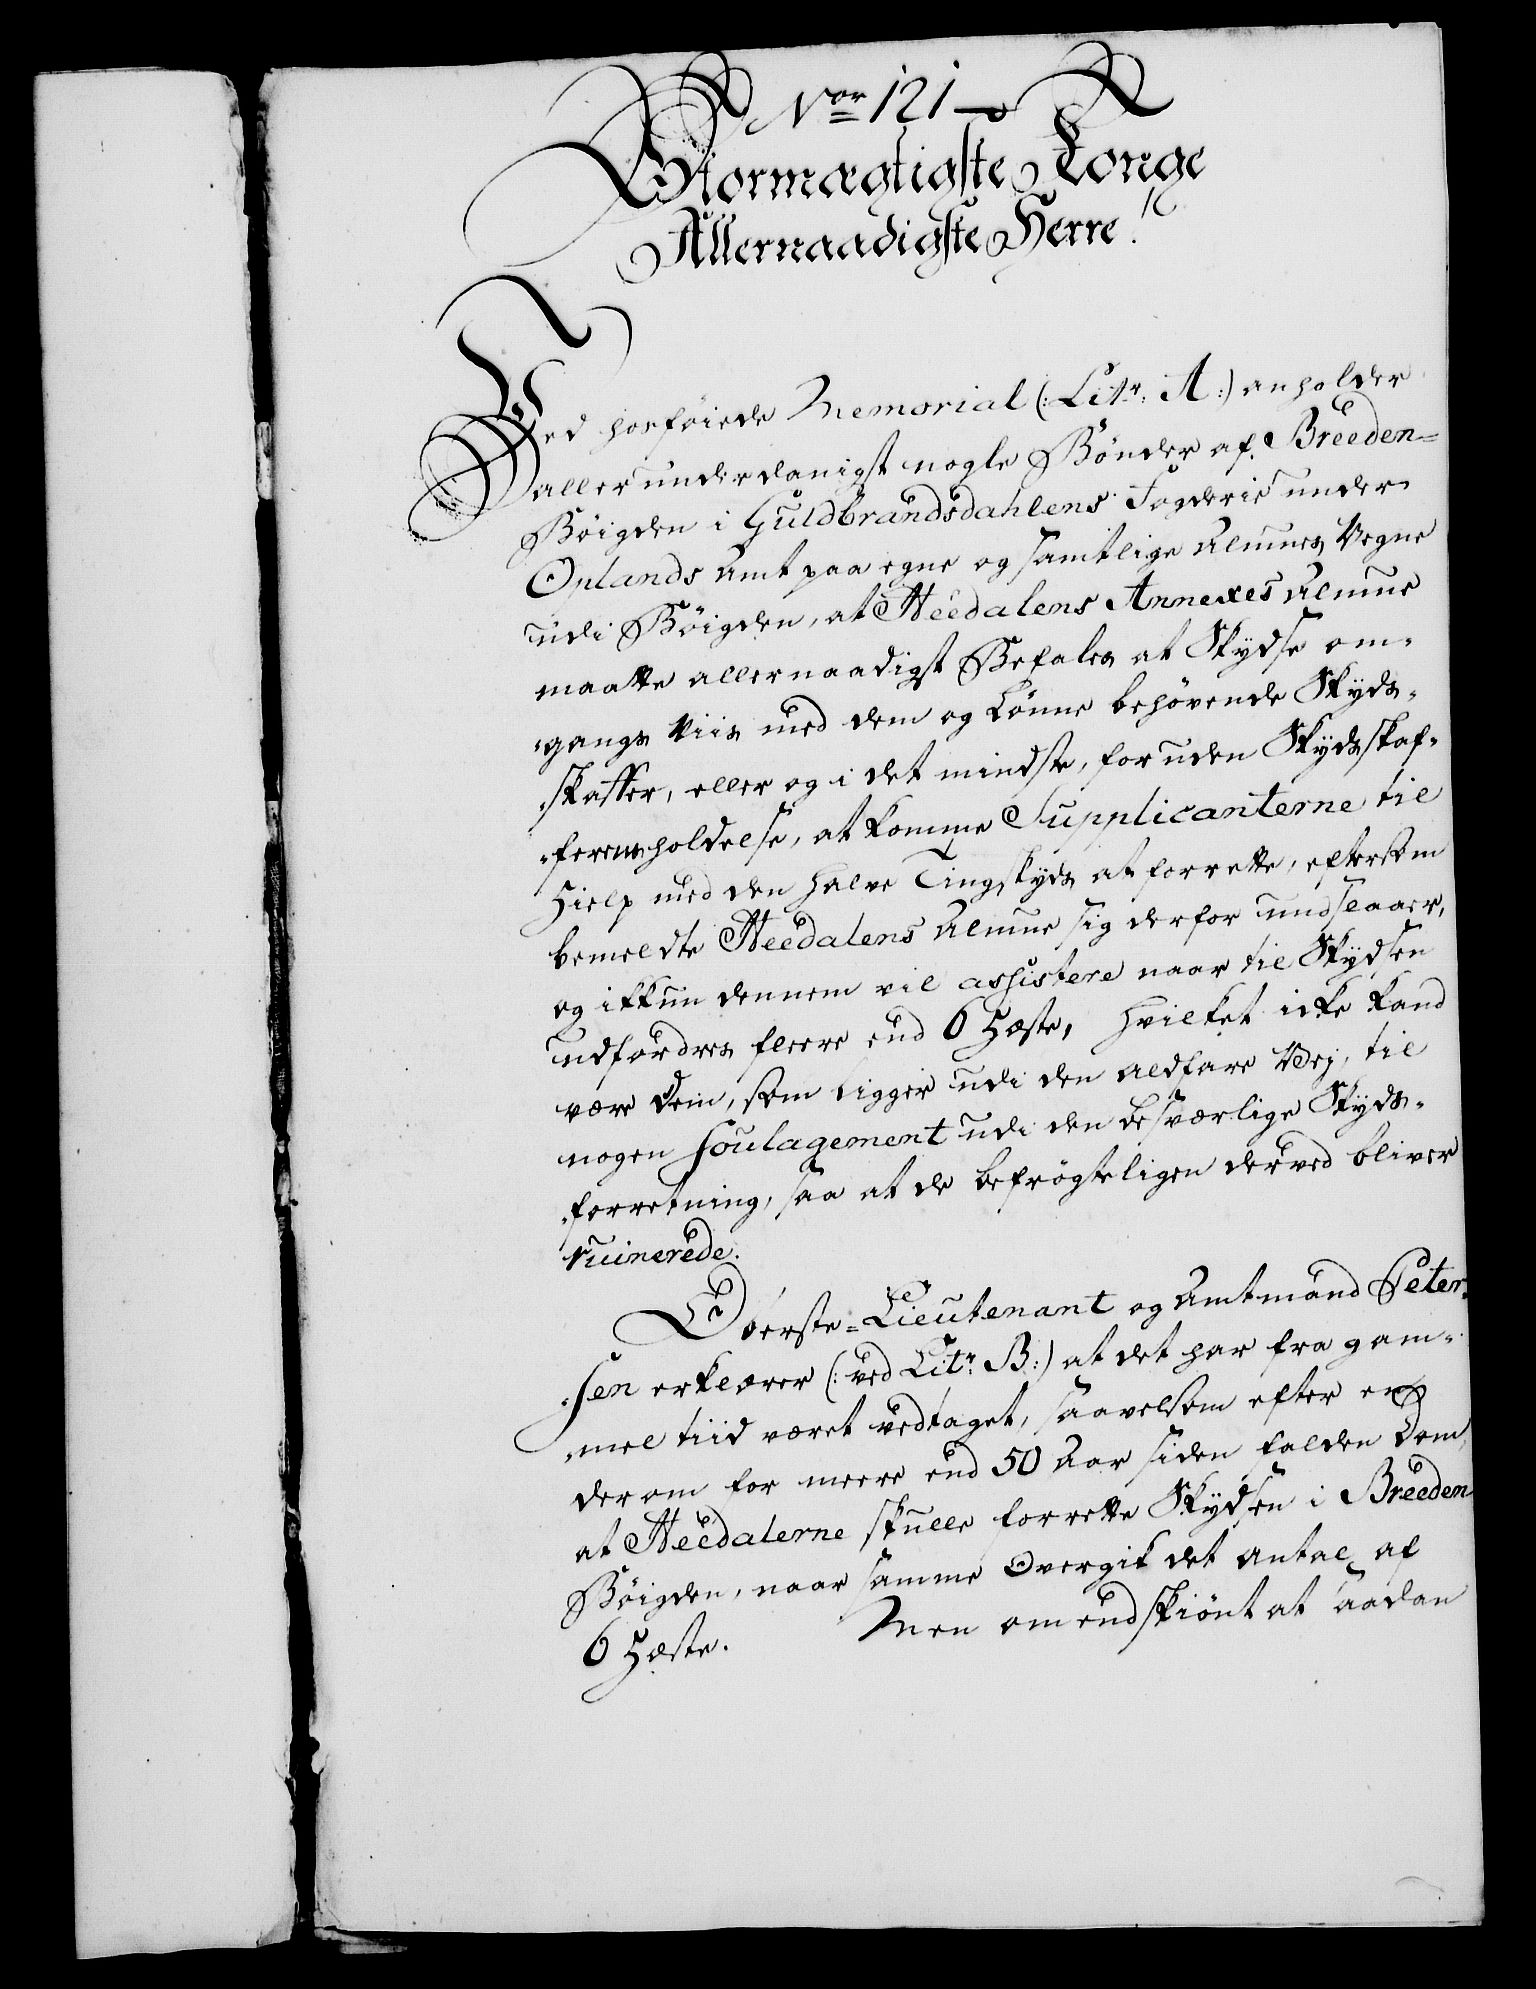 Nor 121
Stormægtigste Konge
Allernaadigste Herre!
Ved hosföiede Memorial (: Litr. A:) anholder
allerunderdanigst nogle Bönder af Breeden-
Böigden i Guldbrandsdahlens Fogderie under
Oplands Amt paa egne og samtlige Almues Vegne
udi Böigden, at Heedalens Annexes Almue
maatte allernaadigst Befales at Skydse om-
gangs Viis med dem og Lönne behövende Skyds-
skaffer, eller og i det mindste, foruden Skydsskaf-
ferens holdelse, at komme Supplicanterne til
Hielp med den halve Tingskyds at forrette, eftersom
bemeldte Heedalens Almue sig derfor undslaaer,
og ikkun dennem vil assistere naar til Skydsen
udfordres fleere end 6 Heste, hvilket icke kand
være dem, som ligger udi den alfare Vej, til
nogen Soulagement udi den besværlige Skyds-
forretning, saa at de befrögteligen derved bliver
ruinerede.
Oberste-Lieutenant og Amtmand Peter-
sen erklærer (: ved Litr. B:) at det har fra gam-
mel tiid været vedtaget, saavelsom efter en
derom for meere end 50 Aar siden falden Dom,
at Heedalerne skulle forrette Skydsen i Breeden
Böigden, naar samme Overgik det Antal af
6 Heste. Men omendskiönt at saadan